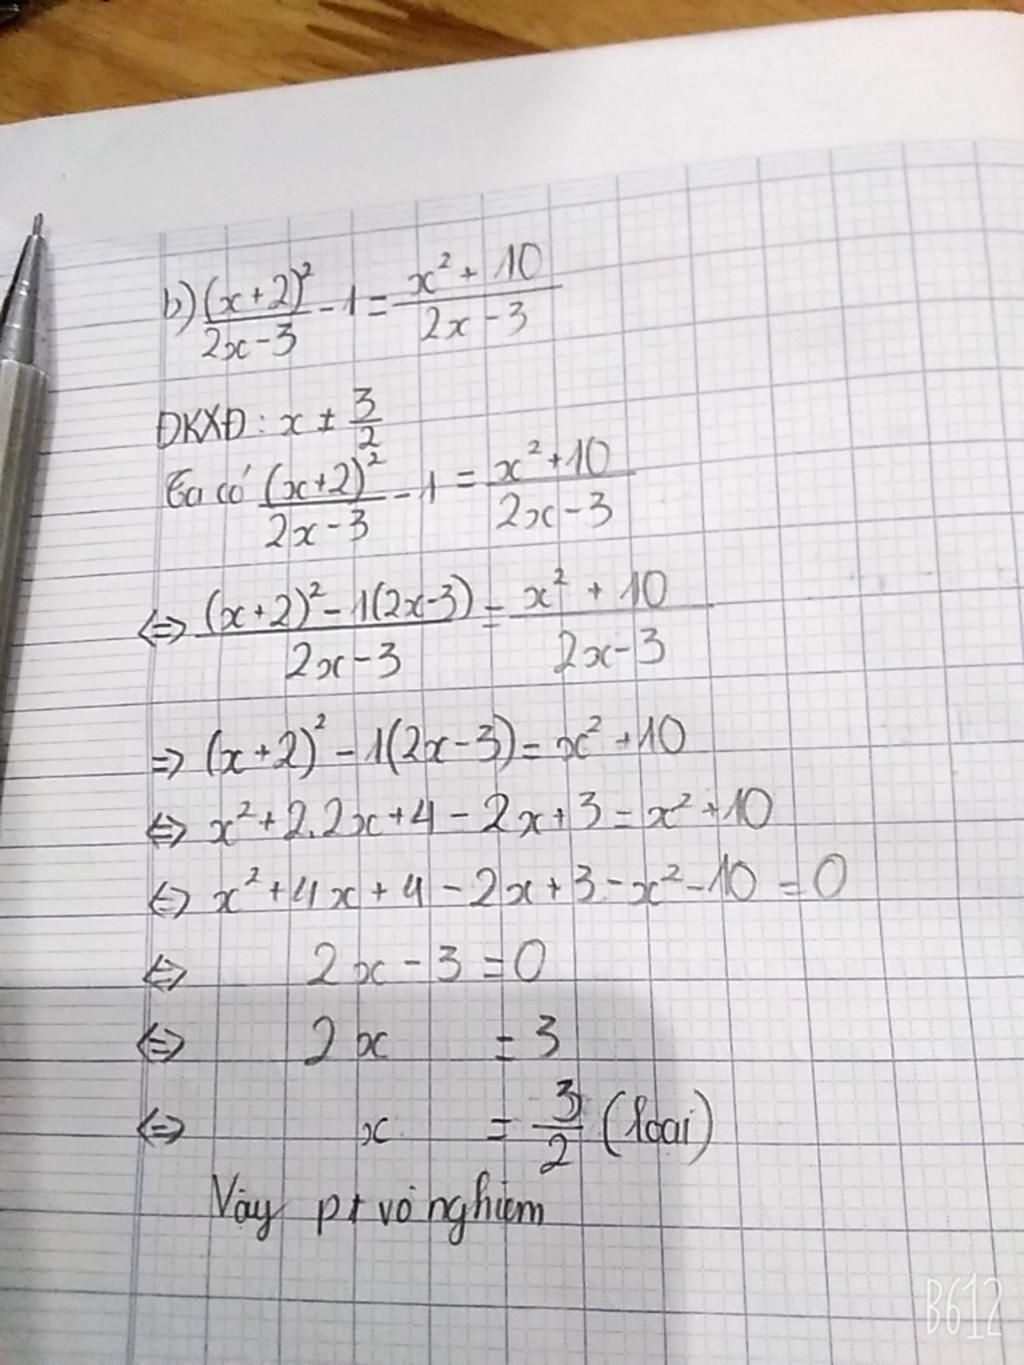 b) (x+2)²/(2x-3) - 1 = (x² + 10)/(2x-3)
ĐKXĐ: x ≠ 3/2
Ta có (x+2)²/(2x-3) - 1 = (x²+10)/(2x-3)
⇔ ((x+2)² - 1(2x-3))/(2x-3) = (x² + 10)/(2x-3)
⇒ (x+2)² - 1(2x-3) = x² + 10
⇔ x² + 2.2x + 4 - 2x + 3 = x² + 10
⇔ x² + 4x + 4 - 2x + 3 - x² - 10 = 0
⇔ 2x - 3 = 0
⇔ 2x = 3
⇔ x = 3/2 (loại)
Vậy pt vô nghiệm
B612